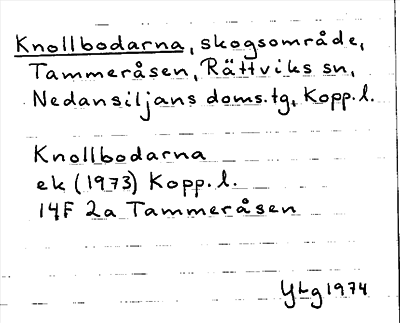 Knollbodarna, skogsområde,
Tammeråsen, Rättviks sn,
Nedansiljans doms.tg, Kopp.l.
Knollbodarna
ek (1973) Kopp.l.
14F 2a Tammeråsen
YLg 1974